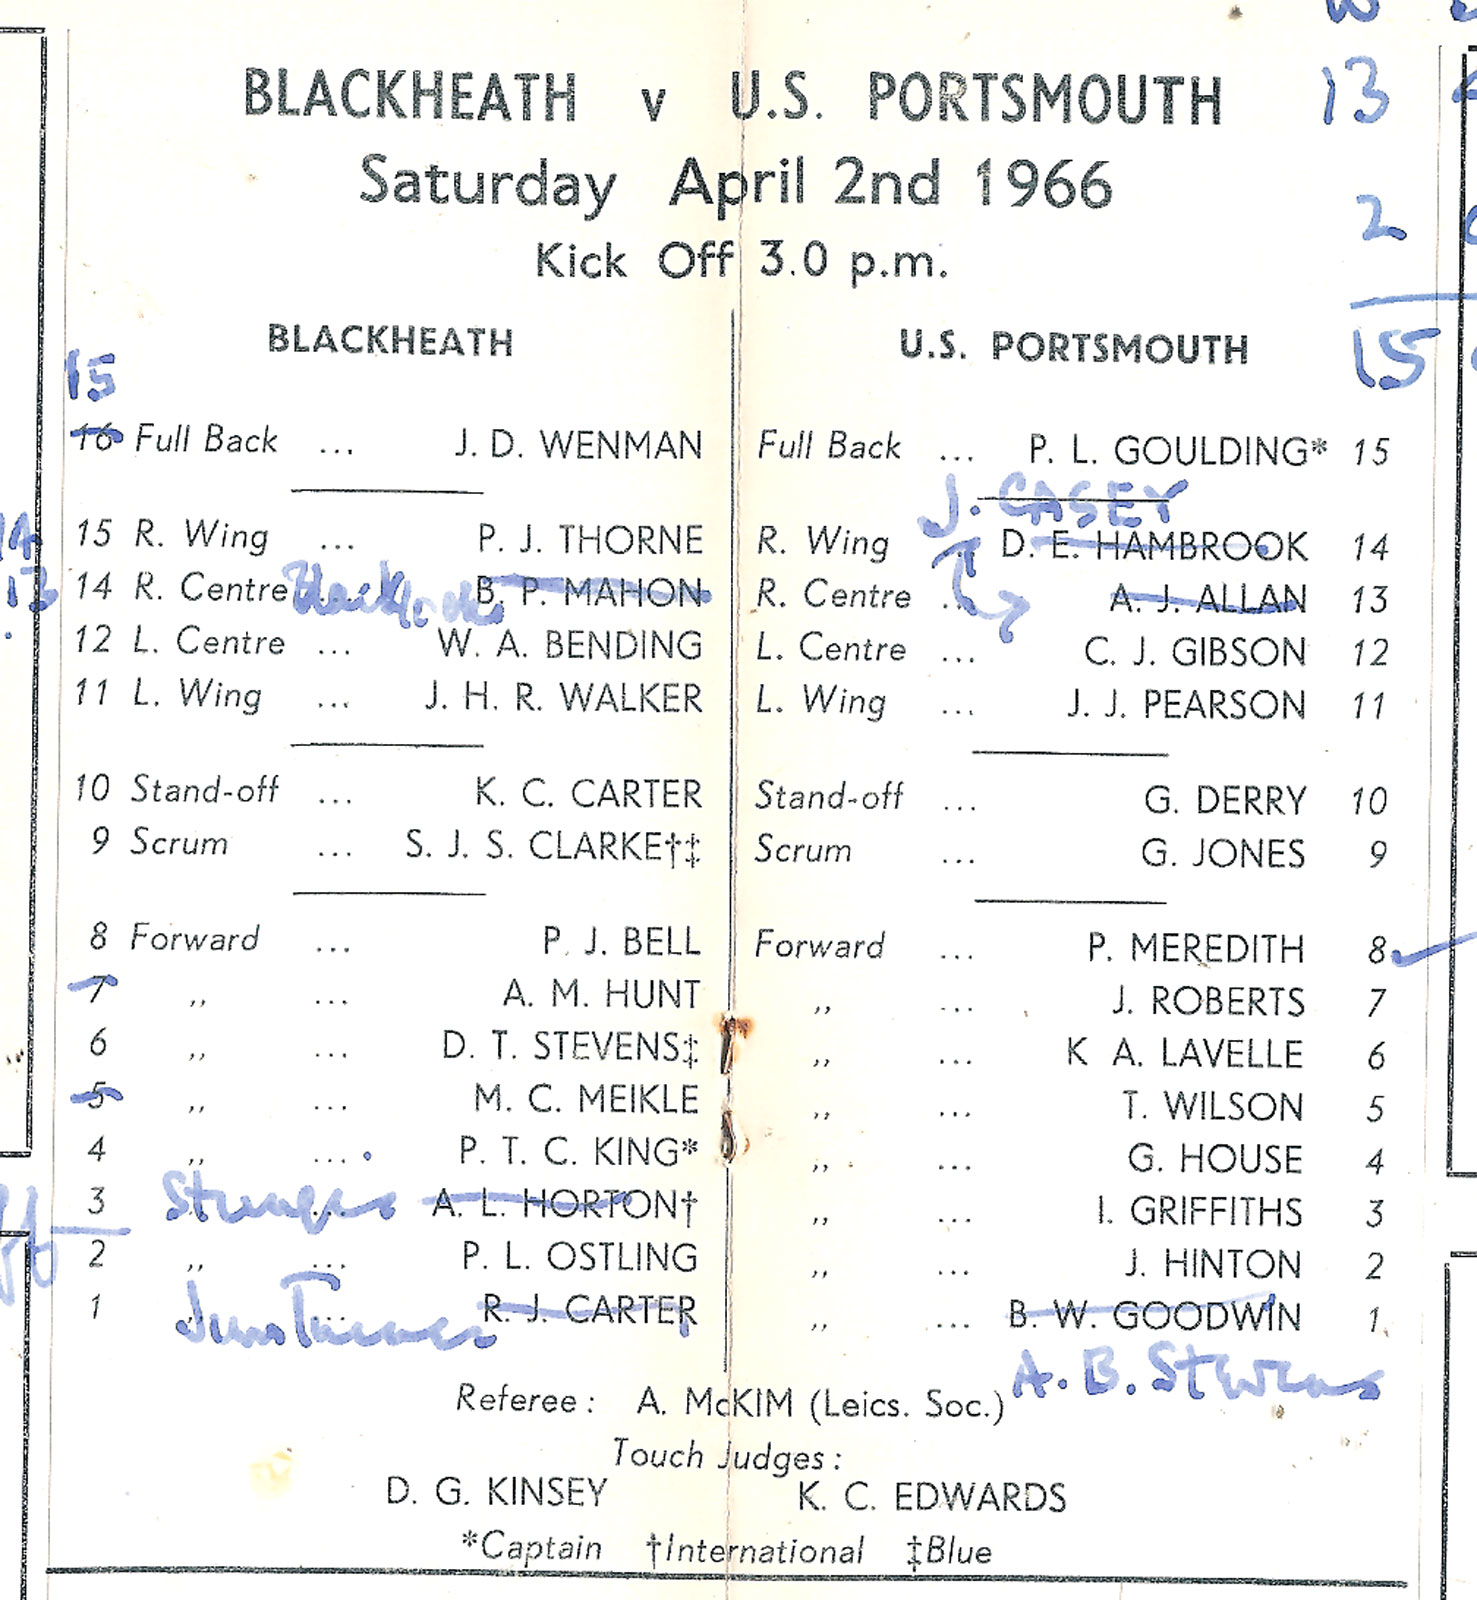 BLACKHEATH v U.S. PORTSMOUTH
13
Saturday April 2nd 1966
2
Kick Off 3.0 p.m.
BLACKHEATH U.S. PORTSMOUTH
15 15
16 Full Back ... J. D. WENMAN Full Back ... P. L. GOULDING* 15
J. CASEY
14 15 R. Wing ... P. J. THORNE R. Wing D. E. HAMBROOK 14
13 14 R. Centre B. P. MAHON R. Centre ... A. J. ALLAN 13
12 L. Centre ... W. A. BENDING L. Centre ... C. J. GIBSON 12
11 L. Wing ... J. H. R. WALKER L. Wing ... J. J. PEARSON 11
10 Stand-off ... K. C. CARTER Stand-off ... G. DERRY 10
9 Scrum ... S. J. S. CLARKE†‡ Scrum ... G. JONES 9
8 Forward ... P. J. BELL Forward ... P. MEREDITH 8
7 ,, ... A. M. HUNT ,, ... J. ROBERTS 7
6 ,, ... D. T. STEVENS‡ ,, ... K A. LAVELLE 6
5 ,, ... M. C. MEIKLE ,, ... T. WILSON 5
4 ,, ... P. T. C. KING* ,, ... G. HOUSE 4
3 ... A. L. HORTON† ,, ... I. GRIFFITHS 3
2 ,, ... P. L. OSTLING ,, ... J. HINTON 2
1 ,, ... R. J. CARTER ,, ... B. W. GOODWIN 1
A. B. Stevens
Referee : A. McKIM (Leics. Soc.)
Touch Judges :
D. G. KINSEY K. C. EDWARDS
*Captain †International ‡Blue